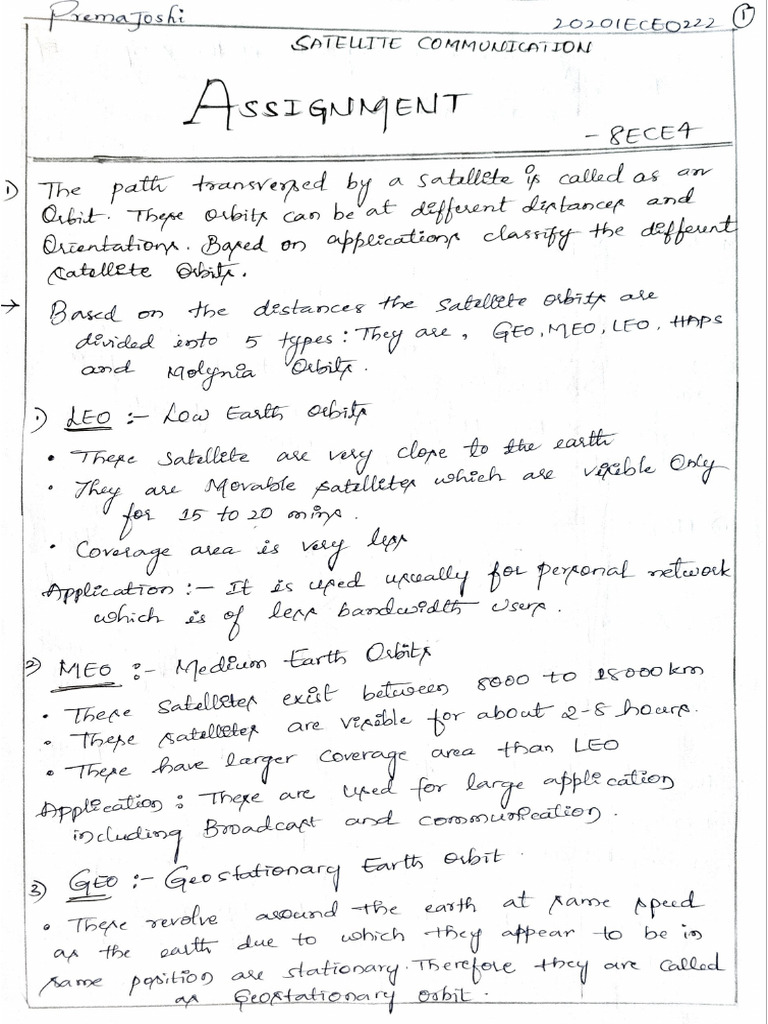 Prema Joshi 20201ECE0222 1
SATELLITE COMMUNICATION
ASSIGNMENT
- 8ECE4
1) The path transversed by a satellite is called as an
Orbit. These orbits can be at different distances and
Orientations. Based on applications classify the different
satellite Orbits.
→ Based on the distances the satellite orbits are
divided into 5 types: They are, GEO, MEO, LEO, HAPS
and Molynia Orbits.
1) LEO :- Low Earth orbits
• These satellite are very close to the earth
• They are Movable satellites which are visible Only
for 15 to 20 mins.
• Coverage area is very less
Application :- It is used usually for personal network
which is of less bandwidth users.
2) MEO :- Medium Earth Orbits
• These Satellites exist between 8000 to 18000 km
• These satellites are visible for about 2-8 hours.
• These have larger coverage area than LEO
Application : These are used for large application
including Broadcast and communication.
3) GEO :- Geostationary Earth orbit.
• These revolve around the earth at same speed
as the earth due to which they appear to be in
same position are stationary. Therefore they are called
as Geostationary orbit.